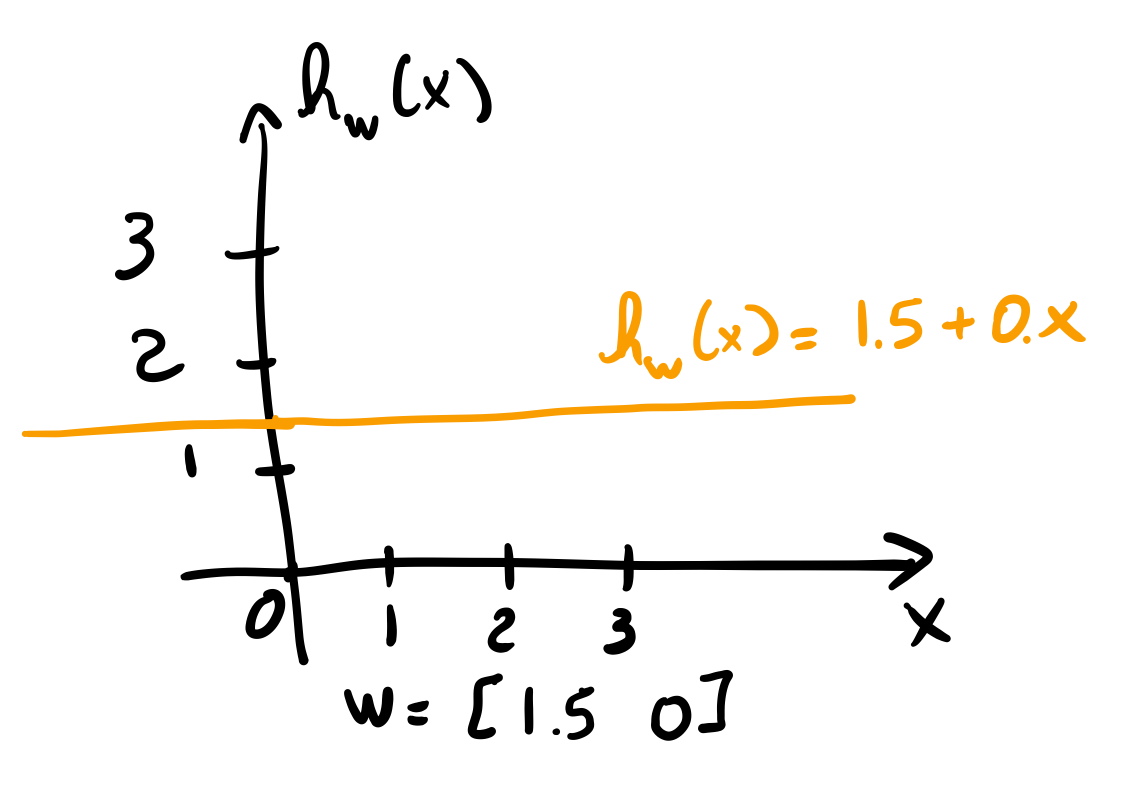 h_w(x)
3
2
h_w(x) = 1.5 + 0.x
1
0 1 2 3 x
w = [1.5 0]